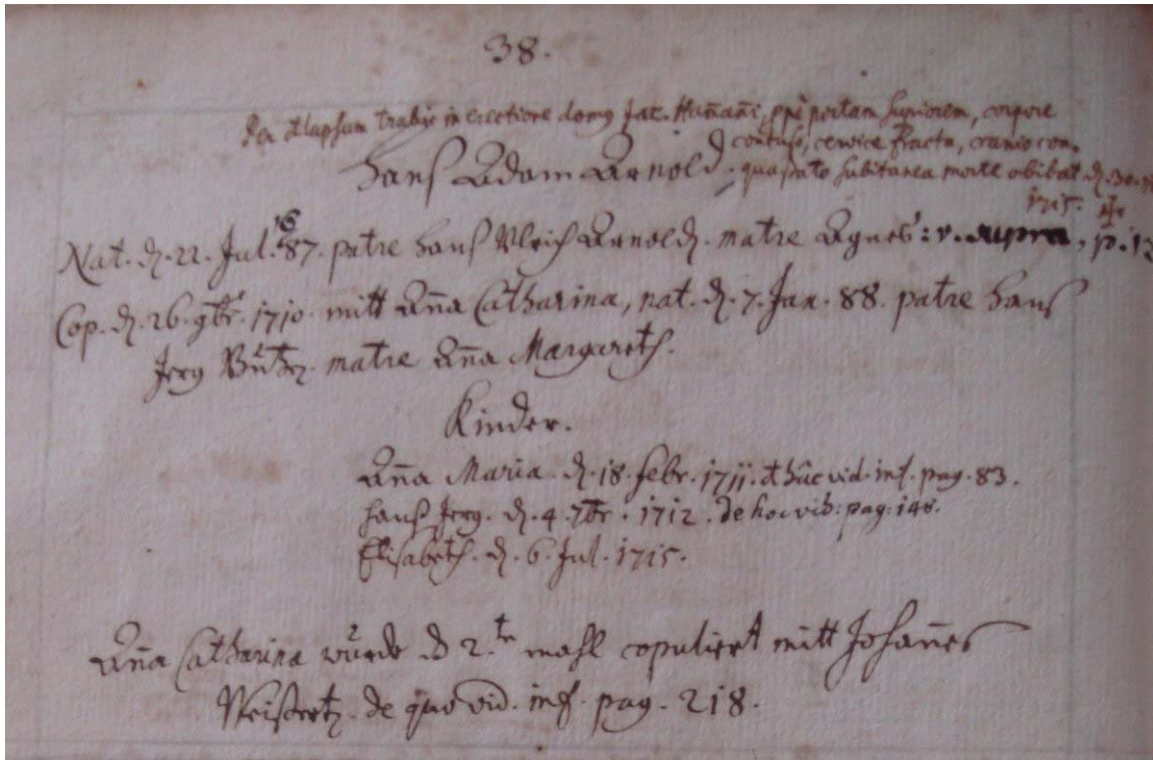 38.
Per elapsum trabis in erectione domus Jac. Humañi, ppè portam superiorem, corpore
contuso, cervice fracta, cranio con-
Hans Adam Arnold. quassato subitanea morte obibat d. 30.
1715.
Nat. d. 22. Jul. 1687. patre Hans Ulrich Arnold. matre Agnes: v. supra, p. 13
Cop. d. 26. 9br. 1710. mitt Aña Catharina, nat. d. 7. Jan. 88. patre Hans
Jerg matre Aña Margareth.
Kinder.
Aña Maria d. 18. Febr. 1711. vid. inf. pag. 83.
Hans Jerg. d. 4. 7br. 1712. de hoc vid: pag: 148.
Elisabeth. d. 6. Jul. 1715.
Aña Catharina wurde d 2.te mahl copuliert mitt Johañes
de quo vid. inf. pag. 218.